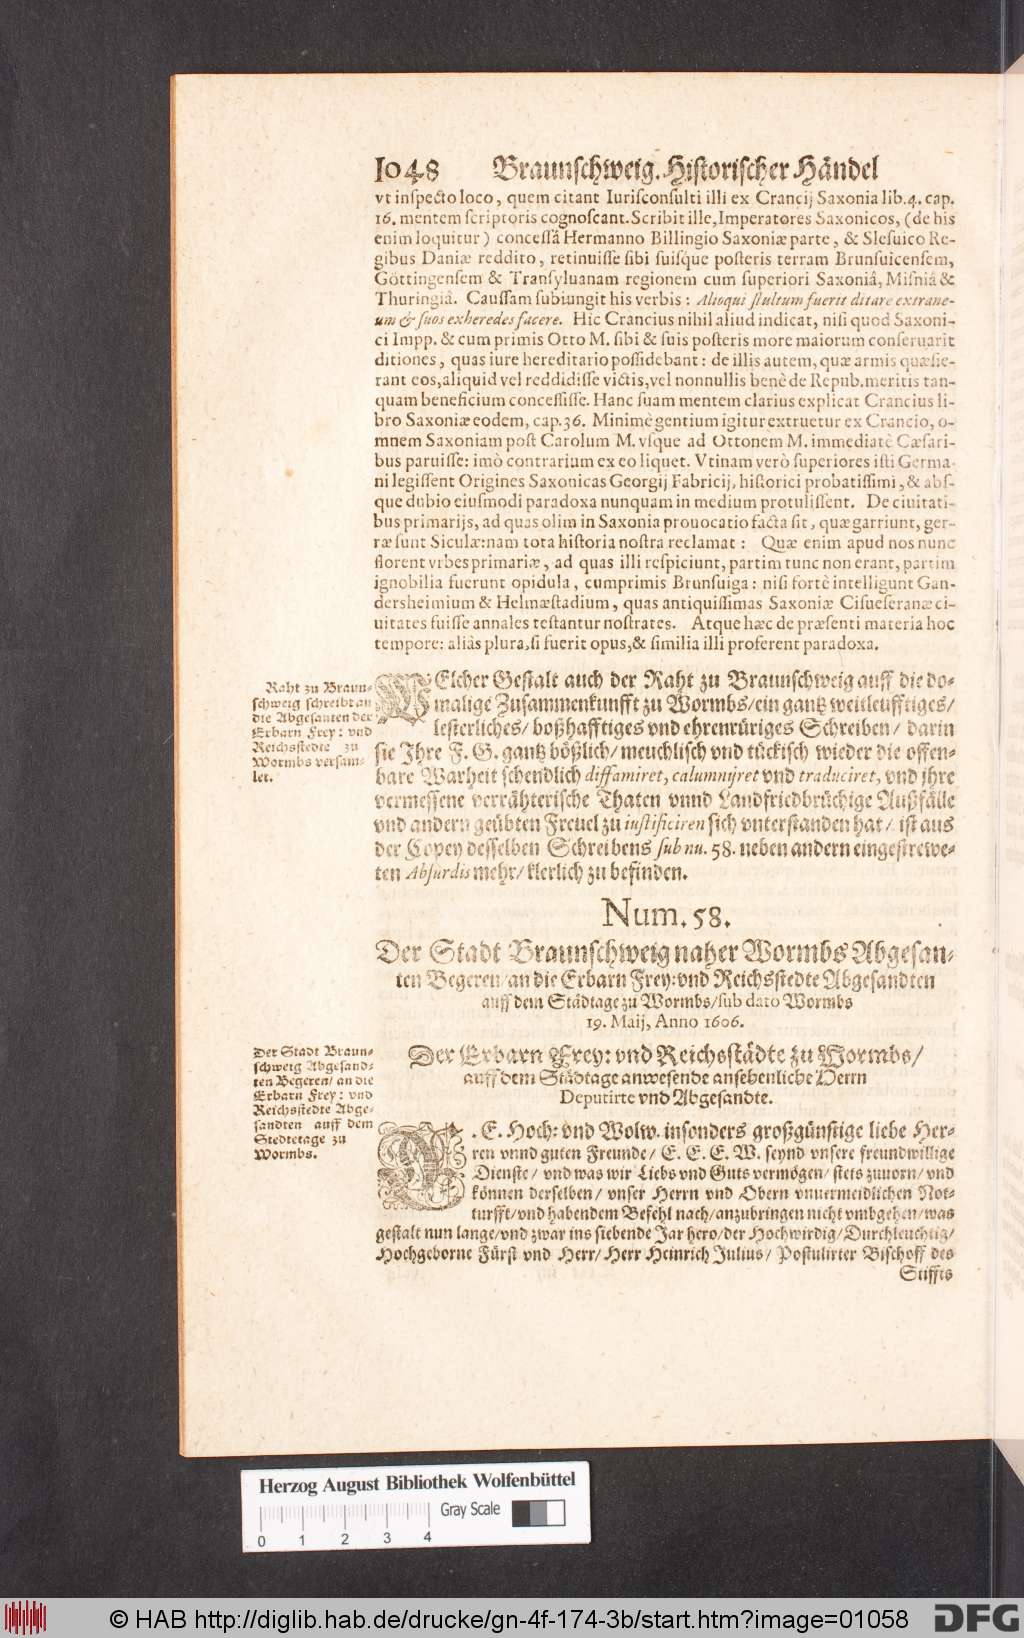 1048 Braunschweig. Historischer Händel
vt inspecto loco, quem citant Iurisconsulti illi ex Crancij Saxonia lib.4. cap.
16. mentem scriptoris cognoscant. Scribit ille, Imperatores Saxonicos, (de his
enim loquitur) concessâ Hermanno Billingio Saxoniæ parte, & Slesuico Re-
gibus Daniæ reddito, retinuisse sibi suisque posteris terram Brunsuicensem,
Göttingensem & Transyluanam regionem cum superiori Saxoniâ, Misniâ &
Thuringiâ. Caussam subiungit his verbis: Alioqui stultum fuerit ditare extrane-
um & suos exheredes facere. Hic Crancius nihil aliud indicat, nisi quod Saxoni-
ci Impp. & cum primis Otto M. sibi & suis posteris more maiorum conseruarit
ditiones, quas iure hereditario possidebant: de illis autem, quæ armis quæsie-
rant eos, aliquid vel reddidisse victis, vel nonnullis benè de Repub. meritis tan-
quam beneficium concessisse. Hanc suam mentem clarius explicat Crancius li-
bro Saxoniæ eodem, cap.36. Minimè gentium igitur extruetur ex Crancio, o-
mnem Saxoniam post Carolum M. vsque ad Ottonem M. immediatè Cæsari-
bus paruisse: imò contrarium ex eo liquet. Vtinam verò superiores isti Germa-
ni legissent Origines Saxonicas Georgij Fabricij, historici probatissimi, & abs-
que dubio eiusmodi paradoxa nunquam in medium protulissent. De ciuitati-
bus primarijs, ad quas olim in Saxonia prouocatio facta sit, quæ garriunt, ger-
ræ sunt Siculæ: nam tota historia nostra reclamat: Quæ enim apud nos nunc
florent vrbes primariæ, ad quas illi respiciunt, partim tunc non erant, partim
ignobilia fuerunt opidula, cumprimis Brunsuiga: nisi fortè intelligunt Gan-
dersheimium & Helmæstadium, quas antiquissimas Saxoniæ Cisueseranæ ci-
uitates fuisse annales testantur nostrates. Atque hæc de præsenti materia hoc
tempore: aliàs plura, si fuerit opus, & similia illi proferent paradoxa.
Raht zu Braun-
schweig schreibt an
die Abgesanten der
Erbarn Frey: vnd
Reichsstedte zu
Wormbs versam-
let.
WElcher Gestalt auch der Raht zu Braunschweig auff die do-
malige Zusammenkunfft zu Wormbs/ ein gantz weitleufftiges/
lesterliches/ boßhafftiges vnd ehrenrüriges Schreiben/ darin
sie Ihre F. G. gantz bößlich/ meuchlisch vnd tückisch wieder die offen-
bare Warheit schendlich diffamiret, calumnijret vnd traduciret, vnd jhre
vermessene verrähterische Thaten vnnd Landfriedbrüchige Außfälle
vnd andern geübten Freuel zu iustificiren sich vnterstanden hat/ ist aus
der Copey desselben Schreibens sub nu. 58. neben andern eingestrewe-
ten Absurdis mehr/ klerlich zu befinden.
Num. 58.
Der Stadt Braunschweig naher Wormbs Abgesan-
ten Begeren/ an die Erbarn Frey: vnd Reichsstedte Abgesandten
auff dem Städtage zu Wormbs/ sub dato Wormbs
19. Maij, Anno 1606.
Der Stadt Braun-
schweig Abgesand-
ten Begeren/ an die
Erbarn Frey: vnd
Reichstedte Abge-
sandten auff dem
Stedtetage zu
Wormbs.
Der Erbarn Frey: vnd Reichsstädte zu Wormbs/
auff dem Städtage anwesende ansehenliche Herrn
Deputirte vnd Abgesandte.
E. E. Hoch: vnd Wolw. insonders großgünstige liebe Her-
ren vnnd guten Freunde/ E. E. E. W. seynd vnsere freundwillige
Dienste/ vnd was wir Liebs vnd Guts vermögen/ stets zuuorn/ vnd
können derselben/ vnser Herrn vnd Obern vnuermeidlichen Not-
turfft/ vnd habendem Befehl nach/ anzubringen nicht vmbgehen/ was
gestalt nun lange/ vnd zwar ins siebende Jar hero/ der Hochwirdig/ Durchleuchtig/
Hochgeborne Fürst vnd Herr/ Herr Heinrich Julius/ Postulirter Bischoff des
Stiffts
Herzog August Bibliothek Wolfenbüttel
Gray Scale
0 1 2 3 4
© HAB http://diglib.hab.de/drucke/gn-4f-174-3b/start.htm?image=01058 DFG